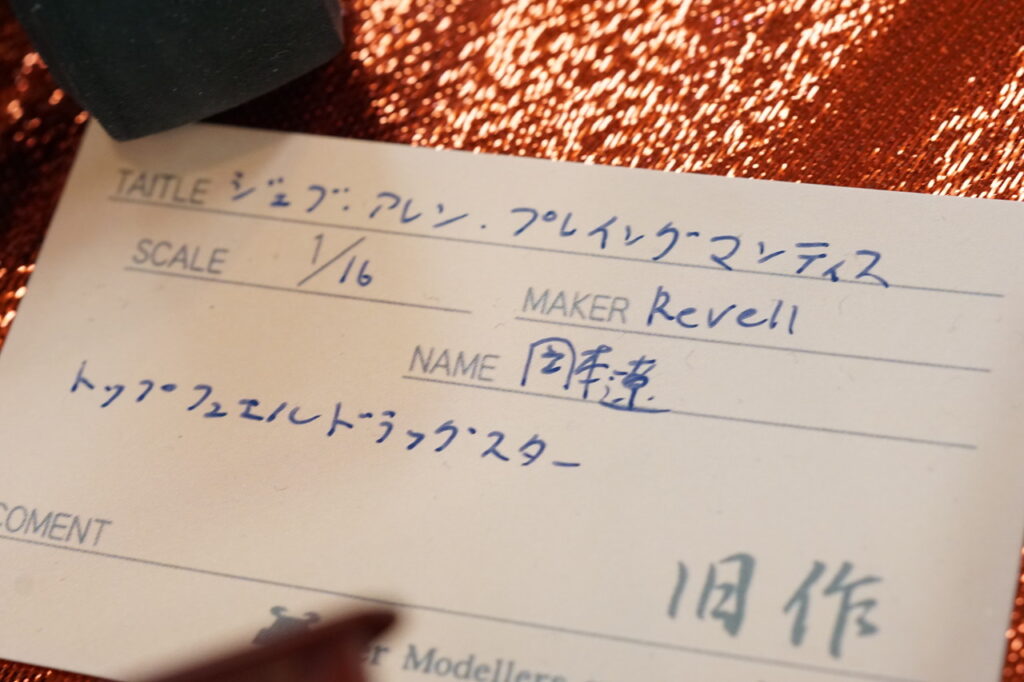 TAITLE ジェブ・アレン・プレイングマンティス
SCALE 1/16
MAKER Revell
NAME 岡本遼
トップフュエルドラッグスター
COMENT
旧作
Modellers